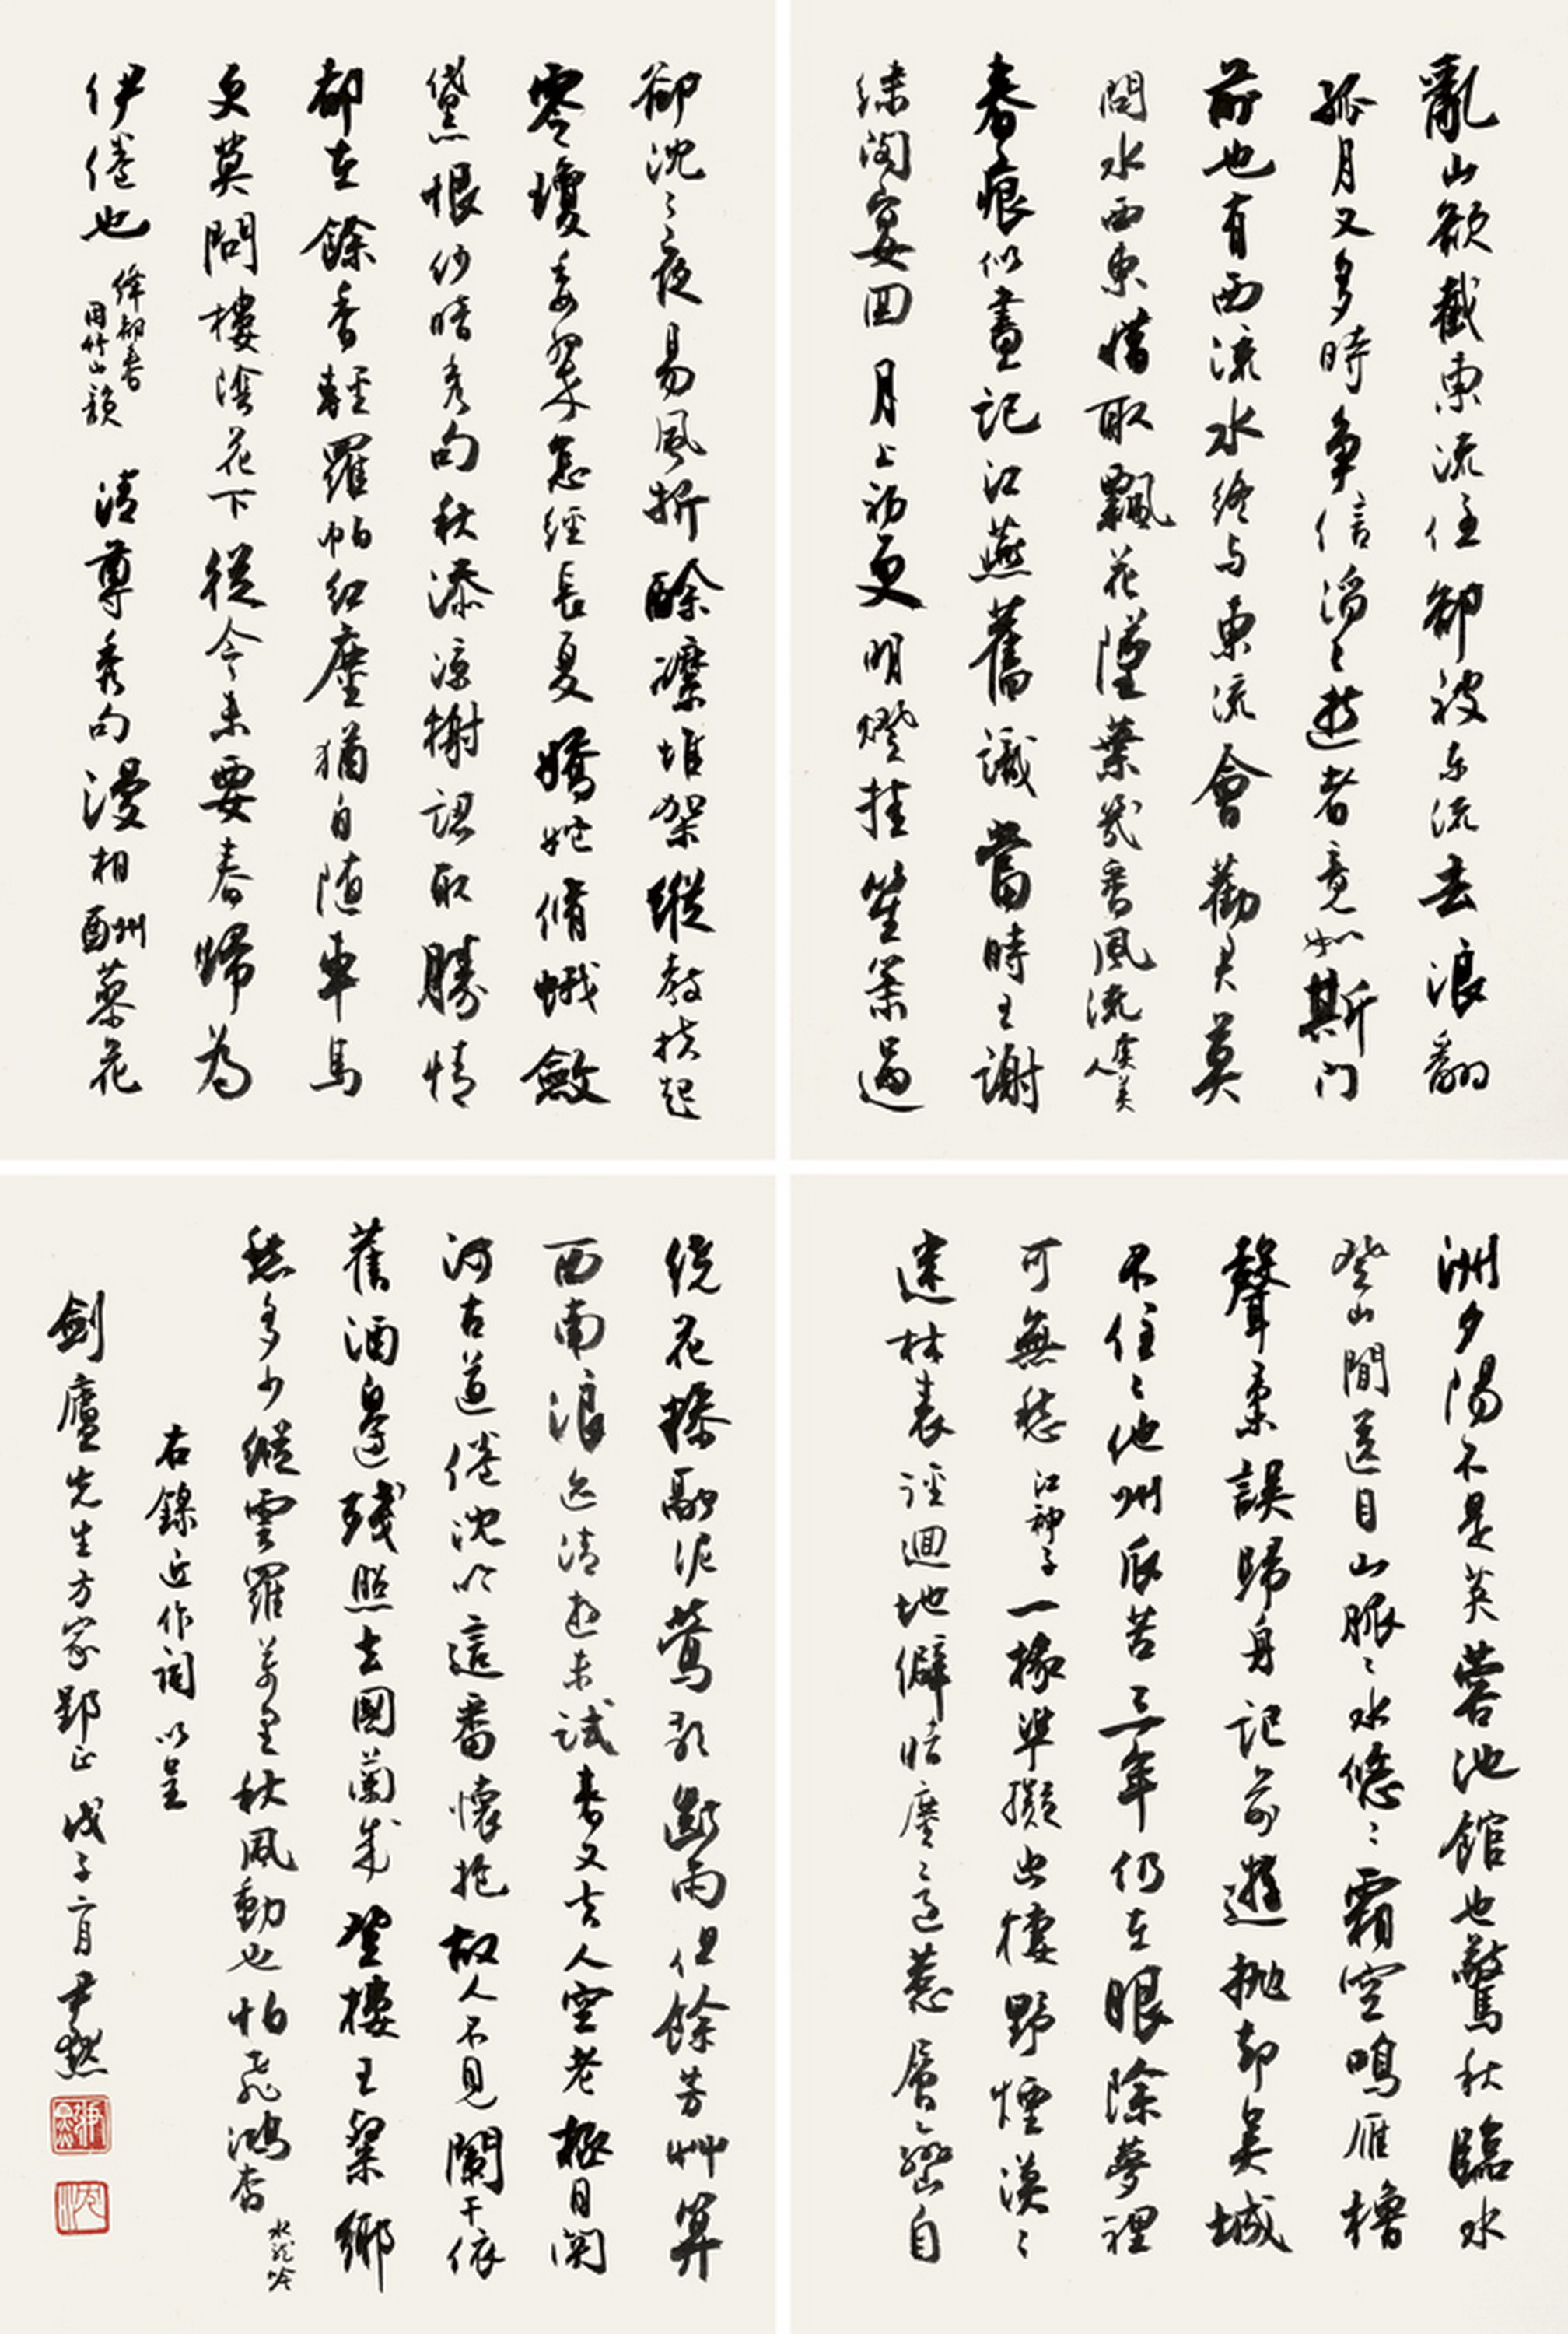 亂山欲截東流住卻被東流去浪翻
孤月又多時爭信滔〻逝者竟如斯門
前也有西流水終與東流會勸君莫
問水西東惜取飄花墮葉幾番風流 虞美人
春痕似畫記江燕舊識當時王謝
綠閣宴回月上初更明燈挂笙簫過
卻沈〻夜易風折酴醾堆架縱教扶起
零瓊委翠怎經長夏 嬌妒脩蛾斂
黛黑恨紗暗秀句秋添涼榭認取勝情
都在餘香輕羅帕紅塵猶自隨車馬
更莫問樓陰花下從今未要春歸為
伊倦也 絳都春用竹山韻 清尊秀句漫相酬蓼花
洲夕陽不是芙蓉池館也驚秋臨水
登山閒送目山脈〻水悠〻 霜空鳴雁櫓
聲柔誤歸舟記前遊拋卻吳城
不住〻他州厭苦三年仍在眼除夢裡
可無愁 江神子 一椽準擬幽棲野煙漠〻
遠林表逕迴地僻
繞花探融泥鶯歌斷雨但餘芳艸算
西南浪迹清遊未試春又去人空老 極目關
河古道倦沈吟這番懷抱故人不見闌干依
舊酒邊殘照去國蘭成登樓王粲鄉
愁多少縱雲羅萬里秋風動也怕飛鴻杳 水龍吟
右錄近作詞以呈
劍廬先生方家郢正 戊子二月 尹默